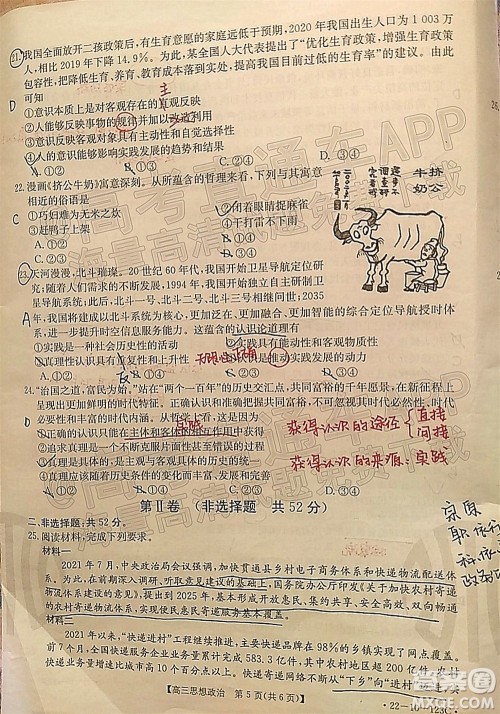 21.我国全面放开二孩政策后,有生育意愿的家庭远低于预期,2020 年我国出生人口为 1 003 万
人,相比 2019 年下降 14.9%。为此,某全国人大代表提出了“优化生育政策,增强生育政策
包容性,把降低生育、养育、教育成本落到实处,提高我国目前过低的生育率”的建议。由此
可知
①意识本质上是对客观存在的直观反映
主
②人能够反映事物的规律并加以改造利用
③意识反映客观对象具有主动性和自觉选择性
④人的意识能够影响实践发展的趋势和结果
A.①② B.①③ C.②④ D.③④
D
22.漫画《挤公牛奶》寓意深刻。从所蕴含的哲理来看,下列与其寓意
相近的俗语是
①巧妇难为无米之炊 ②闭眼睛捉麻雀
③赶鸭子上架 ④干打雷不下雨
A.①② B.①④
C.②③ D.③④
C
挤公
牛奶
23.天河漫漫,北斗璀璨。20 世纪 60 年代,我国开始卫星导航试验研
究;随着人们需求的不断发展,1994 年,我国开始独立自主研制卫
星导航系统;此后,北斗一号、北斗二号、北斗三号相继问世;2035
年,我国将构建以北斗系统为核心,更加泛在、更加融合、更加智能的综合定位导航授时体
系,实现更高时空信息服务能力。这蕴含的认识论道理有
①实践是一种社会历史性的活动 ②实践具有能动性和客观物质性
③真理性认识具有反复性和上升性 ④认识是推动实践发展的动力
A.①② B.①③ C.②④ D.③④
A
24.“治国之道,富民为始。”站在“两个一百年”的历史交汇点,共同富裕的千年愿景,在新征程上
呈现出更加鲜明的时代特征。正确认识和把握共同富裕,不可忽视其时代性和必然
性,也不可忽视其长期性和复杂性。从哲学上看,这是因为
①正确的认识只能在主体和客体的相互作用中获得
实践
②追求真理是一个不断克服片面性甚至错误的过程
③真理是具体的,是主观与客观具体的历史的统一
④真理应随着历史条件的变化而不断丰富、发展和完善
A.①② B.①③ C.②④ D.③④
D
获得认识的途径 直接
间接
获得认识的来源:实践
第Ⅱ卷 (非选择题 共 52 分)
二、非选择题:共 52 分。
25.阅读材料,完成下列要求。
材料一
2021 年 7 月,中央政治局会议强调,加快贯通县乡村电子商务体系和快递物流配送体
系。为此,在前期深入调研、听取意见建议的基础上,国务院办公厅印发《关于加快农村寄递
物流体系建设的意见》,提出到 2025 年,基本形成开放惠民、集约共享、安全高效、双向畅通
的农村寄递物流体系,实现便民惠民寄递服务基本覆盖。
材料二
2021 年以来,“快递进村”工程继续推进,主要快递品牌在 98%的乡镇实现网点覆盖,
前 7 个月,全国快递服务企业业务量累计完成 583.3 亿件,其中农村地区增长更快,农村
快递业务量增速比城市高 10 个百分点以上。快递寄递网络不断从“下乡”向“进村”
高三思想政治 第 5 页(共 6 页)
22-10-123C